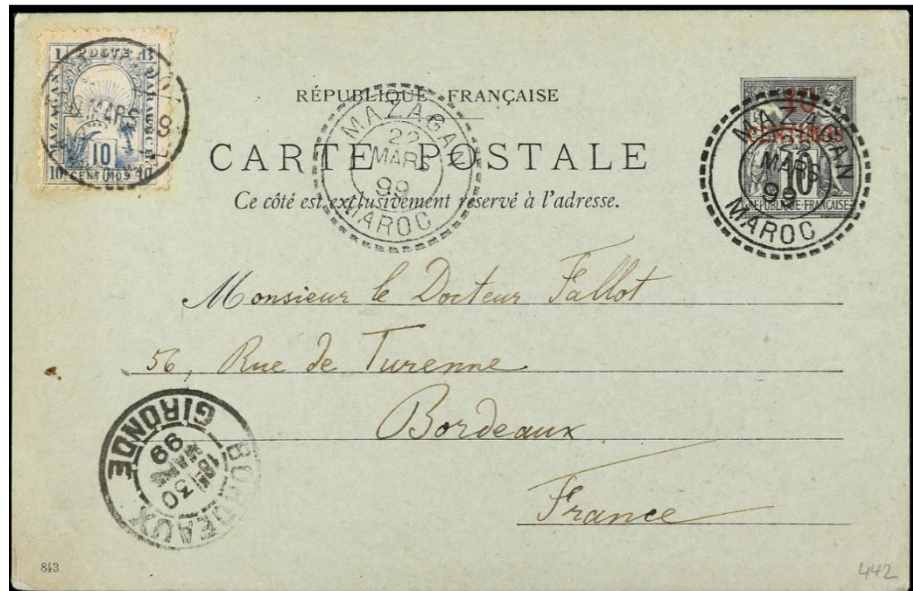 POSTE
MAZAGAN MARAKECH
10
10 CENTIMOS 10
MARS
RÉPUBLIQUE FRANÇAISE
CARTE POSTALE
Ce côté est exclusivement réservé à l'adresse.
MAZAGAN
22
MARS
99
MAROC
10
CENTIMOS
10
REPUBLIQUE FRANÇAISE
MAZAGAN
MARS
99
MAROC
Monsieur le Docteur Fallot
56, Rue de Turenne
Bordeaux
France
BORDEAUX
30
MARS
99
GIRONDE
843
442